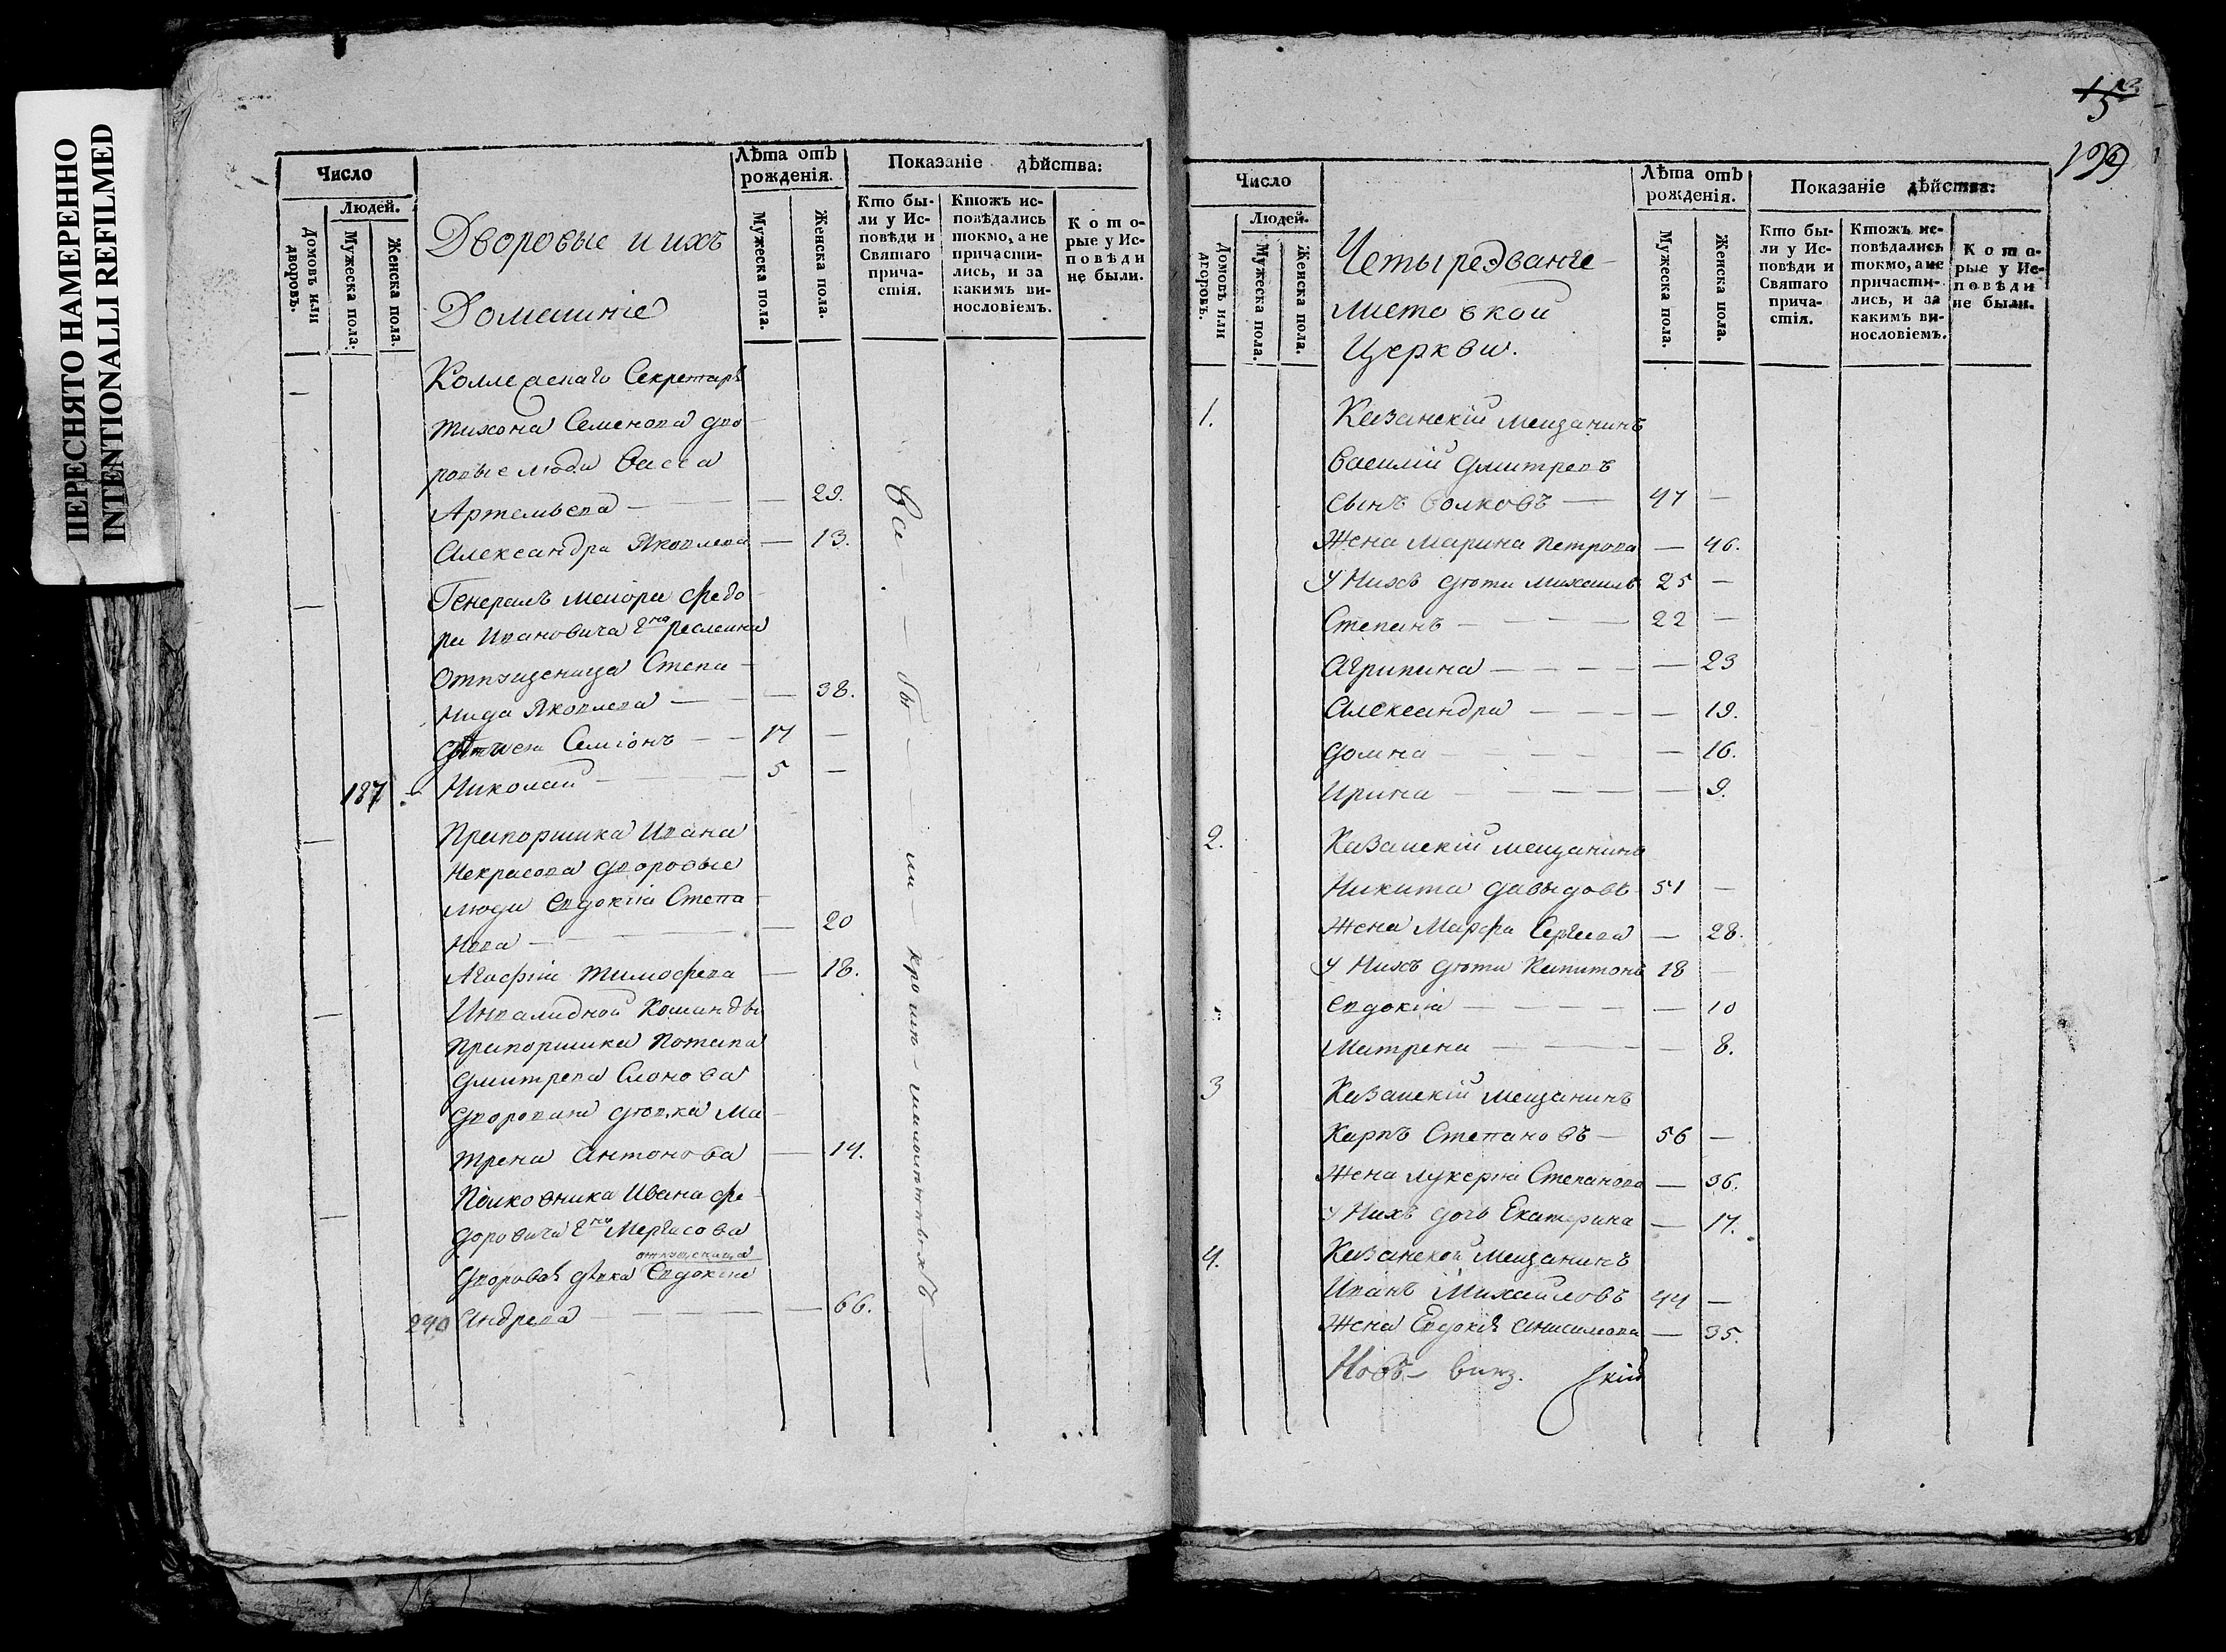 ПЕРЕСНЯТО НАМЕРЕННО
INTENTIONALLI REFILMED
Число
Людей.
Домовъ или дворовъ.
Мужеска пола.
Женска пола.
Дворовые и ихъ
Домашніе
Лѣта отъ рожденія.
Мужеска пола.
Женска пола.
Показаніе дѣйства:
Кто были у Исповѣди и Святаго причастія.
Ктожъ исповѣдались токмо, а не причастились, и за какимъ винословіемъ.
Которые у Исповѣди не были.
Секретаря
Тихона Семенова дво
ровые люди Васса
Артемьева — — 29.
Александра Яковлева — 13.
Генералъ Маіора Федо
ра Ивановича Гна
Отпущеница Степа
нида Яковлева — — 38.
Семіонъ — 17 —
187 Николай — 5 —
Прапорщика Ивана
Некрасова дворовые
люди Евдокія Степа
нова — — 20
Агафія Тимофева — 18.
Инвалидной Команды
Прапорщика Потапа
Дмитрева Слонова
Дворовая дѣвка Ма
трена Антонова — 14.
Полковника Ивана Фе
доровича Гна Мергасова
отпущеница
Дворовая дѣвка Евдокія
290 Андрева — — 66.
Все — бы — ли —
15
199
Число
Людей.
Домовъ или дворовъ.
Мужеска пола.
Женска пола.
Четыреэванге
листовкой
Церкви.
Лѣта отъ рожденія.
Мужеска пола.
Женска пола.
Показаніе дѣйства:
Кто были у Исповѣди и Святаго причастія.
Ктожъ исповѣдались токмо, а не причастились, и за какимъ винословіемъ.
Которые у Исповѣди не были.
1. Казанскій мещанинъ
Василій Дмитревъ
сынъ Волковъ — 47 —
Жена Марина Петрова — 46.
У Нихъ дѣти Михаилъ 25 —
Степанъ — 22 —
Агрипина — — 23
Александра — — 19.
Домна — — 16.
Ирина — — 9.
2. Казанскій мещанинъ
Никита Давыдовъ 51 —
Жена Марфа Сергеева — 28.
У Нихъ дѣти Капитонъ 18 —
Евдокія — — 10
Матрена — — 8.
3 Казанскій мещанинъ
Карпъ Степановъ — 56 —
Жена Лукерія Степанова — 36.
У Нихъ дочь Екатерина — 17.
4. Казанской мещанинъ
Иванъ Михайловъ 44 —
Жена Евдокія Анисимова — 35.